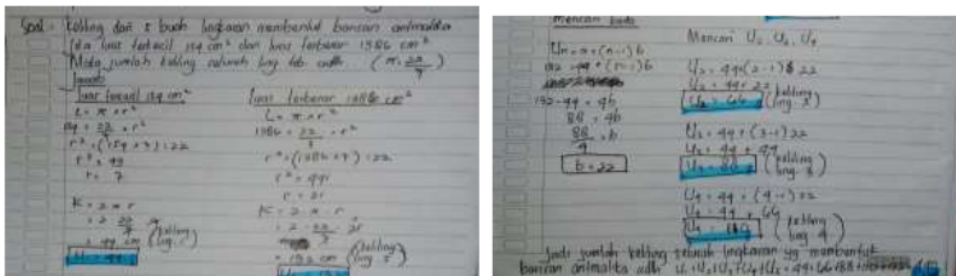 Soal : keliling dari 5 buah lingkaran membentuk barisan aritmatika
jika luas terkecil 154 cm² dan luas terbesar 1386 cm²
Maka jumlah keliling seluruh ling tsb adlh (π = 22/7)
Jawab
luas terkecil 154 cm²
L = π × r²
154 = 22/7 × r²
r² = (154 × 7) : 22
r² = 49
r = 7
K = 2 π r
= 2 22/7 7
= 44 cm (keliling ling 1)
luas terbesar 1386 cm²
L = π × r²
1386 = 22/7 × r²
r² = (1386 × 7) : 22
r² = 441
r = 21
K = 2 . π . r
= 2 . 22/7 . 21
= 132 cm (keliling ling 5)
mencari beda
Un = a + (n-1) b
132 = 44 + (5-1) b
132 - 44 = 4b
88 = 4b
88/4 = b
b = 22
Mencari U₂, U₃, U₄
U₂ = 44 + (2-1) 22
U₂ = 44 + 22
U₂ = 66 (keliling ling 2)
U₃ = 44 + (3-1) 22
U₃ = 44 + 44
U₃ = 88 (keliling ling 3)
U₄ = 44 + (4-1) 22
U₄ = 44 + 66
U₄ = 110 (keliling ling 4)
Jadi jumlah keliling seluruh lingkaran yg membentuk
barisan aritmatika adlh U₁+U₂+U₃+U₄+U₅ = 44+66+88+110+132 = 440